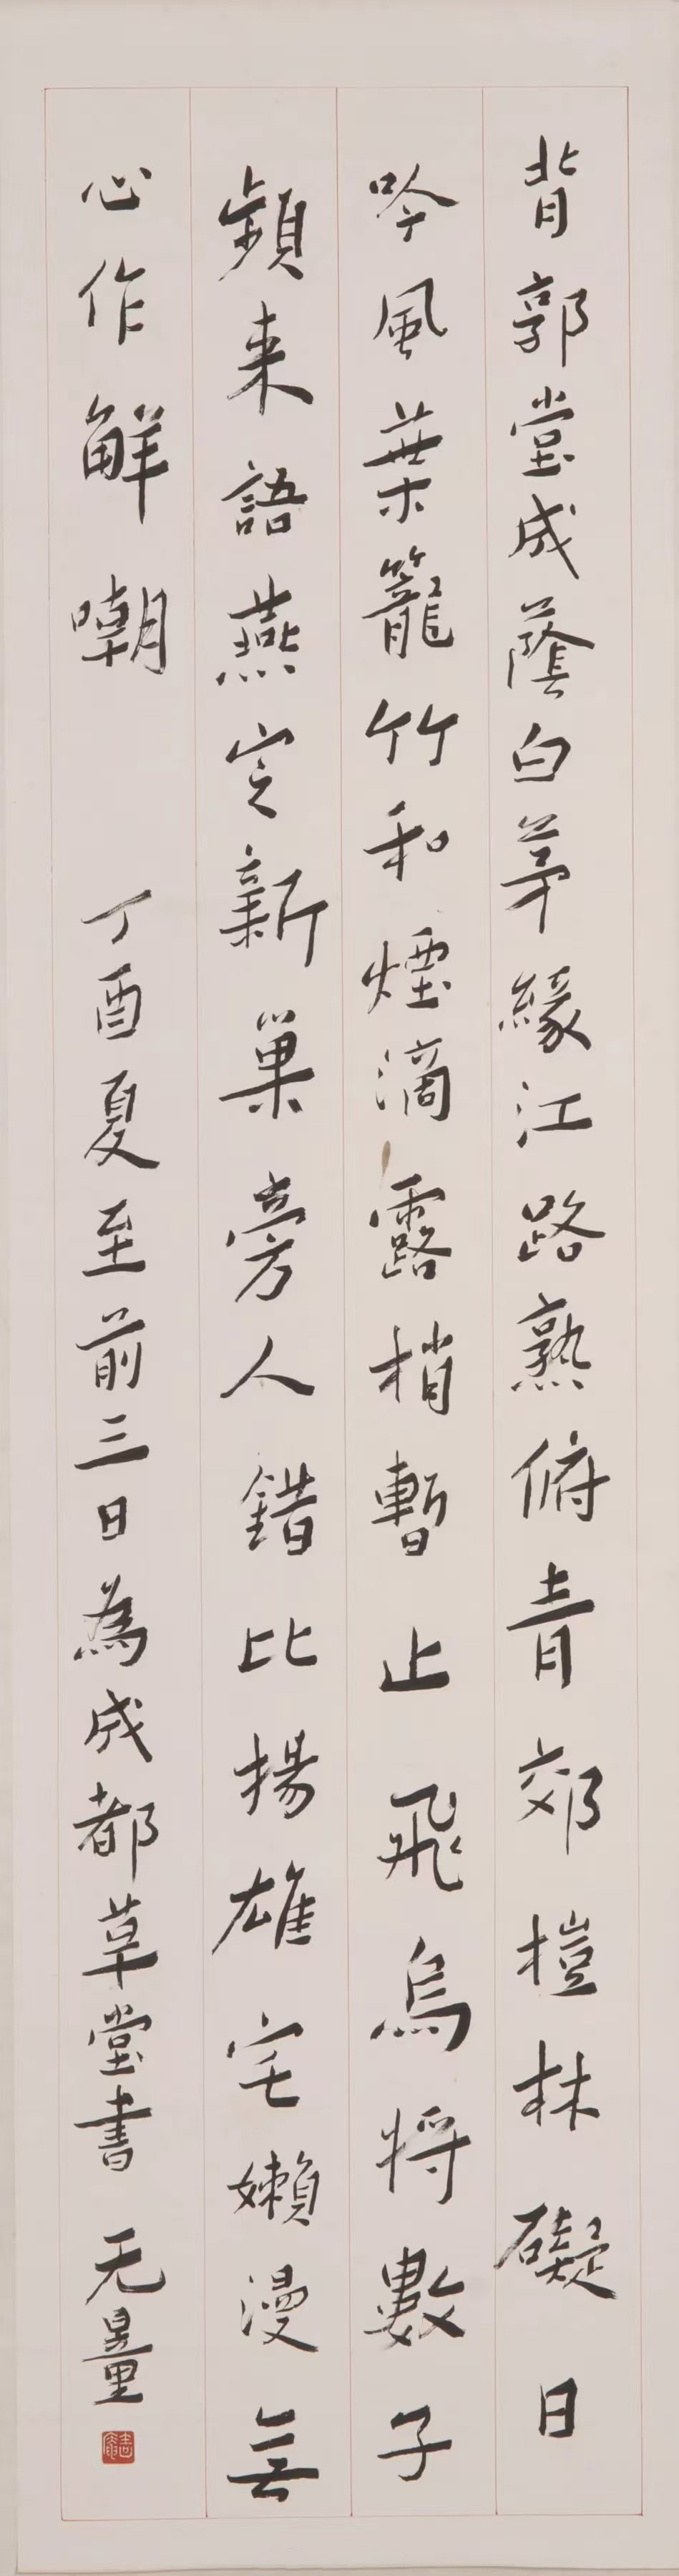 背郭堂成蔭白茅緣江路熟俯青郊榿林礙日
吟風葉籠竹和煙滴露梢暫止飛烏將數子
頻来語燕定新巢旁人錯比揚雄宅嬾漫無
心作解嘲
丁酉夏至前三日為成都草堂書 无量